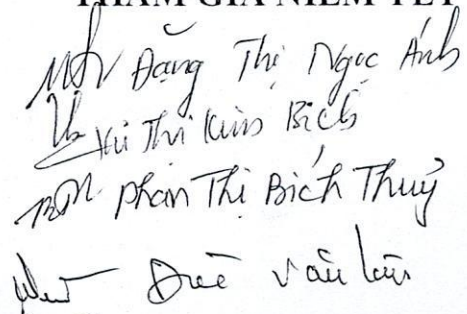 THAM GIA NIÊM YẾT
Đặng Thị Ngọc Ánh
Thị Kim Bích
Phan Thị Bích Thuỷ
Văn